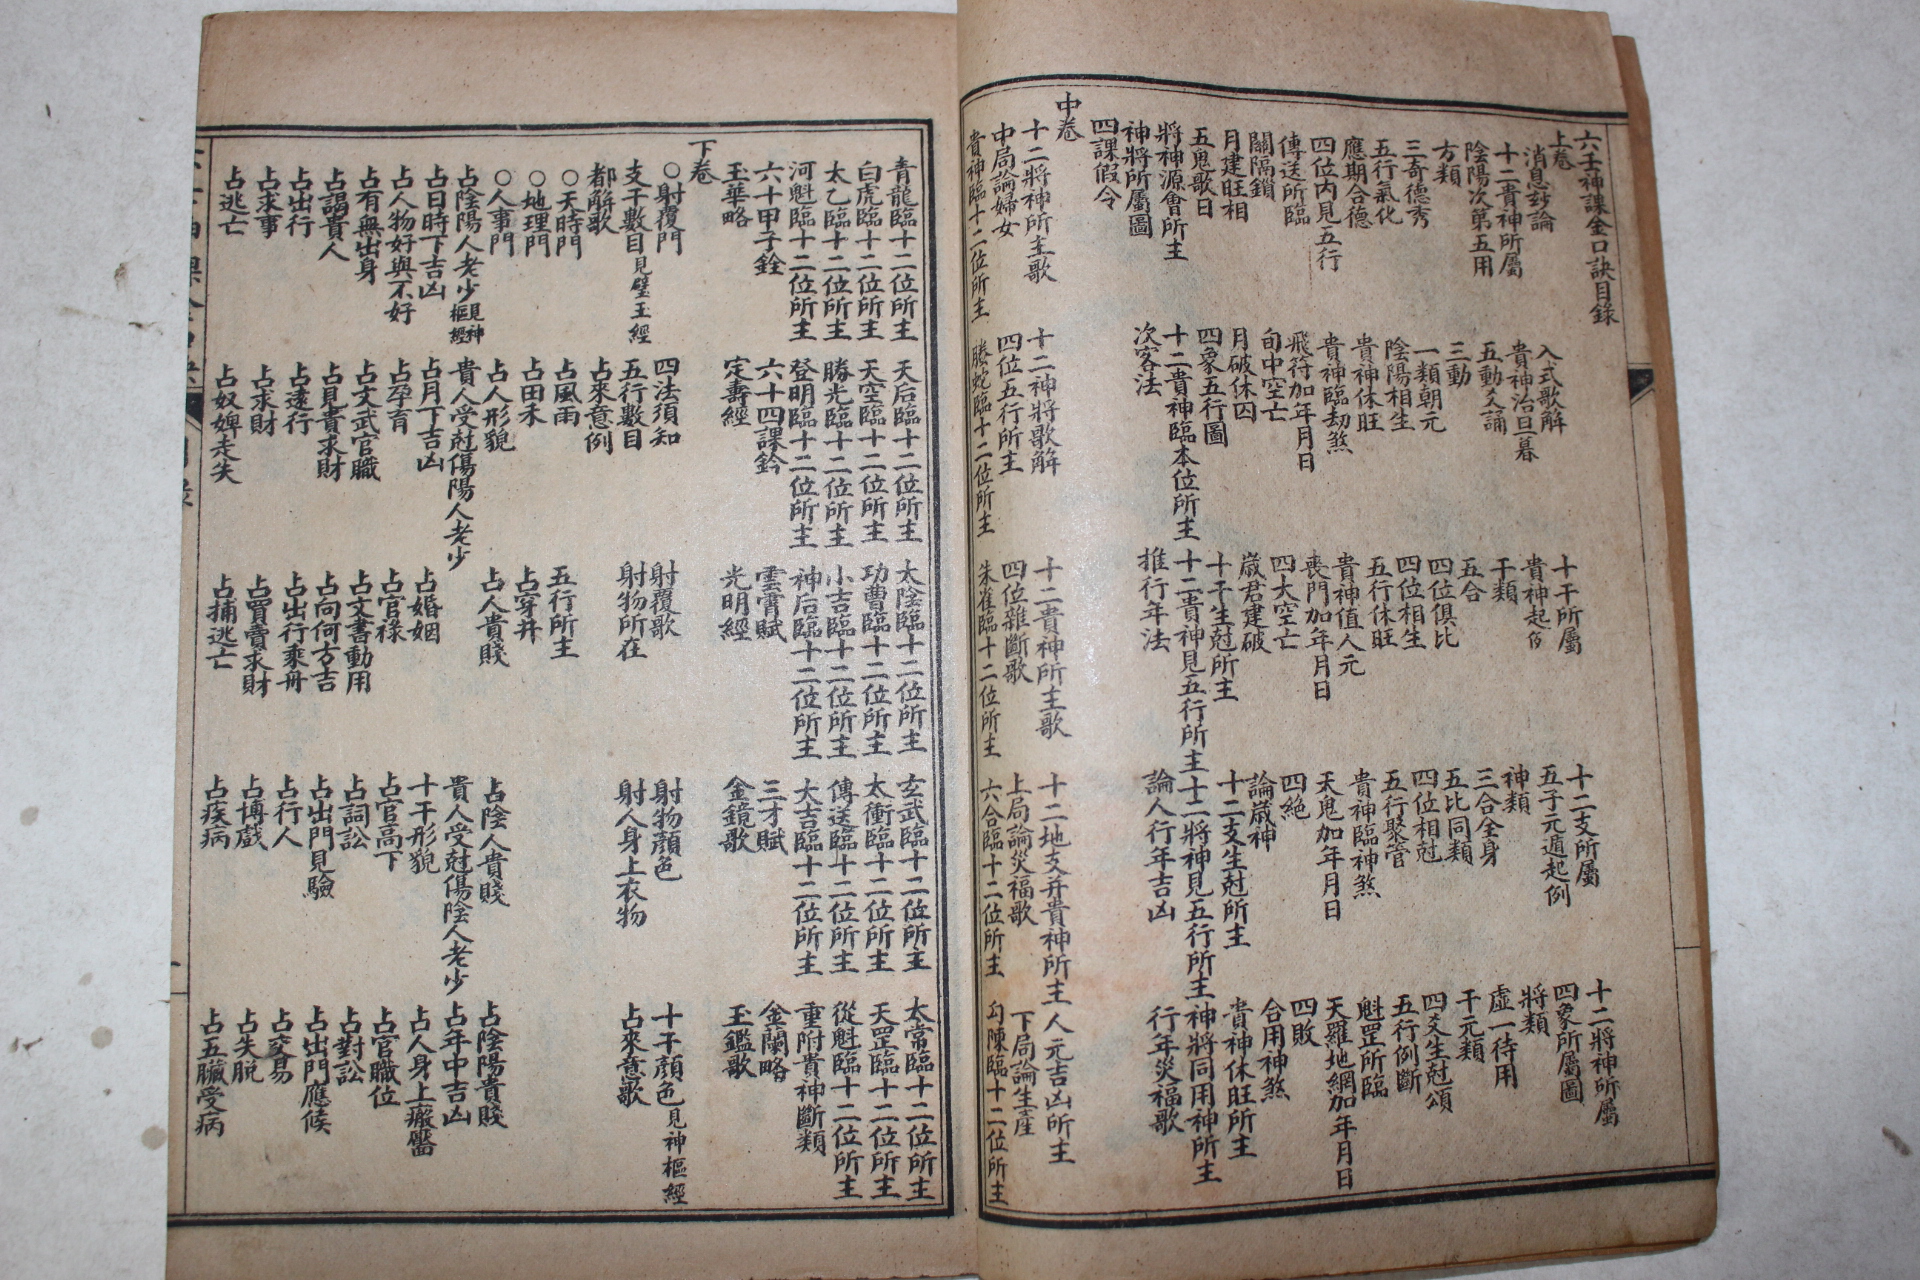 六壬神課金口訣目錄
上卷
消息玅論 入式歌解 十干所屬 十二支所屬 十二將神所屬
十二貴神所屬 貴神治旦暮 貴神起例 五子元遁起例 四象所屬圖
陰陽次第五用 五動爻誦 干類 神類 將類
方類 三動 五合 三合全身 虛一待用
三奇德秀 一類朝元 四位俱比 五比同類 干元類
五行氣化 陰陽相生 四位相生 四位相尅 四爻生尅頌
應期合德 貴神休旺 五行休旺 五行聚管 五行例斷
四位內見五行 貴神臨劫煞 貴神值人元 貴神臨神煞 魁罡所臨
傳送所臨 飛符加年月日 喪門加年月日 天鬼加年月日 天羅地網加年月日
關隔鎖 旬中空亡 四大空亡 四絕 四敗
月建旺相 月破休囚 歲君建破 論歲神 合用神煞
五鬼歌日 四象五行圖 十干生尅所主 十二支生尅所主 貴神休旺所主
將神源會所主 十二貴神臨本位所主 十二貴神見五行所主 十二將神見五行所主 神將同用神所主
神將所屬圖 次客法 推行年法 論人行年吉凶 行年災福歌
四課假令
中卷
十二將神所主歌 十二神將歌解 十二貴神所主歌 十二地支并貴神所主 人元吉凶所主
中局論婦女 四位五行所主 四位雜斷歌 上局論災福歌 下局論生產
貴神臨十二位所主 螣蛇臨十二位所主 朱雀臨十二位所主 六合臨十二位所主 勾陳臨十二位所主
青龍臨十二位所主 天后臨十二位所主 太陰臨十二位所主 玄武臨十二位所主 太常臨十二位所主
白虎臨十二位所主 天空臨十二位所主 功曹臨十二位所主 太衝臨十二位所主 天罡臨十二位所主
太乙臨十二位所主 勝光臨十二位所主 小吉臨十二位所主 傳送臨十二位所主 從魁臨十二位所主
河魁臨十二位所主 登明臨十二位所主 神后臨十二位所主 大吉臨十二位所主 重附貴神斷類
六十甲子銓 六十四課鈐 雲霄賦 三才賦 金蘭略
玉華略 定壽經 光明經 金鏡歌 玉鑑歌
下卷
○射覆門 四法須知 射覆歌 射物顏色 十干顏色見神樞經
支干數目見璧玉經 五行數目 射物所在 射人身上衣物 占來意歌
都解歌 占來意例
○天時門 占風雨 五行所主
○地理門 占田禾 占穿井
○人事門 占人形貌 占人貴賤 占陰人貴賤 占陰陽貴賤
占陰陽人老少見神樞經 貴人受尅傷陽人老少 貴人受尅傷陰人老少 占年中吉凶
占日時下吉凶 占月下吉凶 占婚姻 十干形貌 占人身上癜黶
占人物好與不好 占孕育 占官祿 占官高下 占官職位
占有無出身 占文武官職 占文書動用 占詞訟 占對訟
占謁貴人 占見貴求財 占向何方吉 占出門見驗 占出門應候
占出行 占遠行 占出行乘舟 占行人 占交易
占求事 占求財 占買賣求財 占博戲 占失脫
占逃亡 占奴婢走失 占捕逃亡 占疾病 占五臟受病